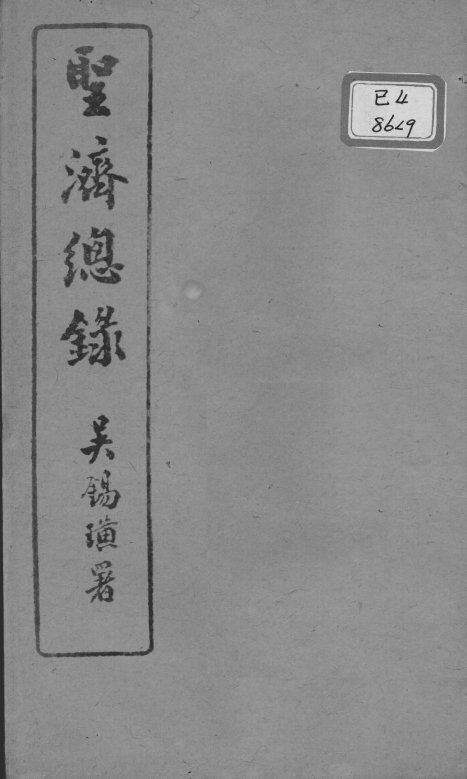 聖濟總錄
吳錫璜署
已4
8629